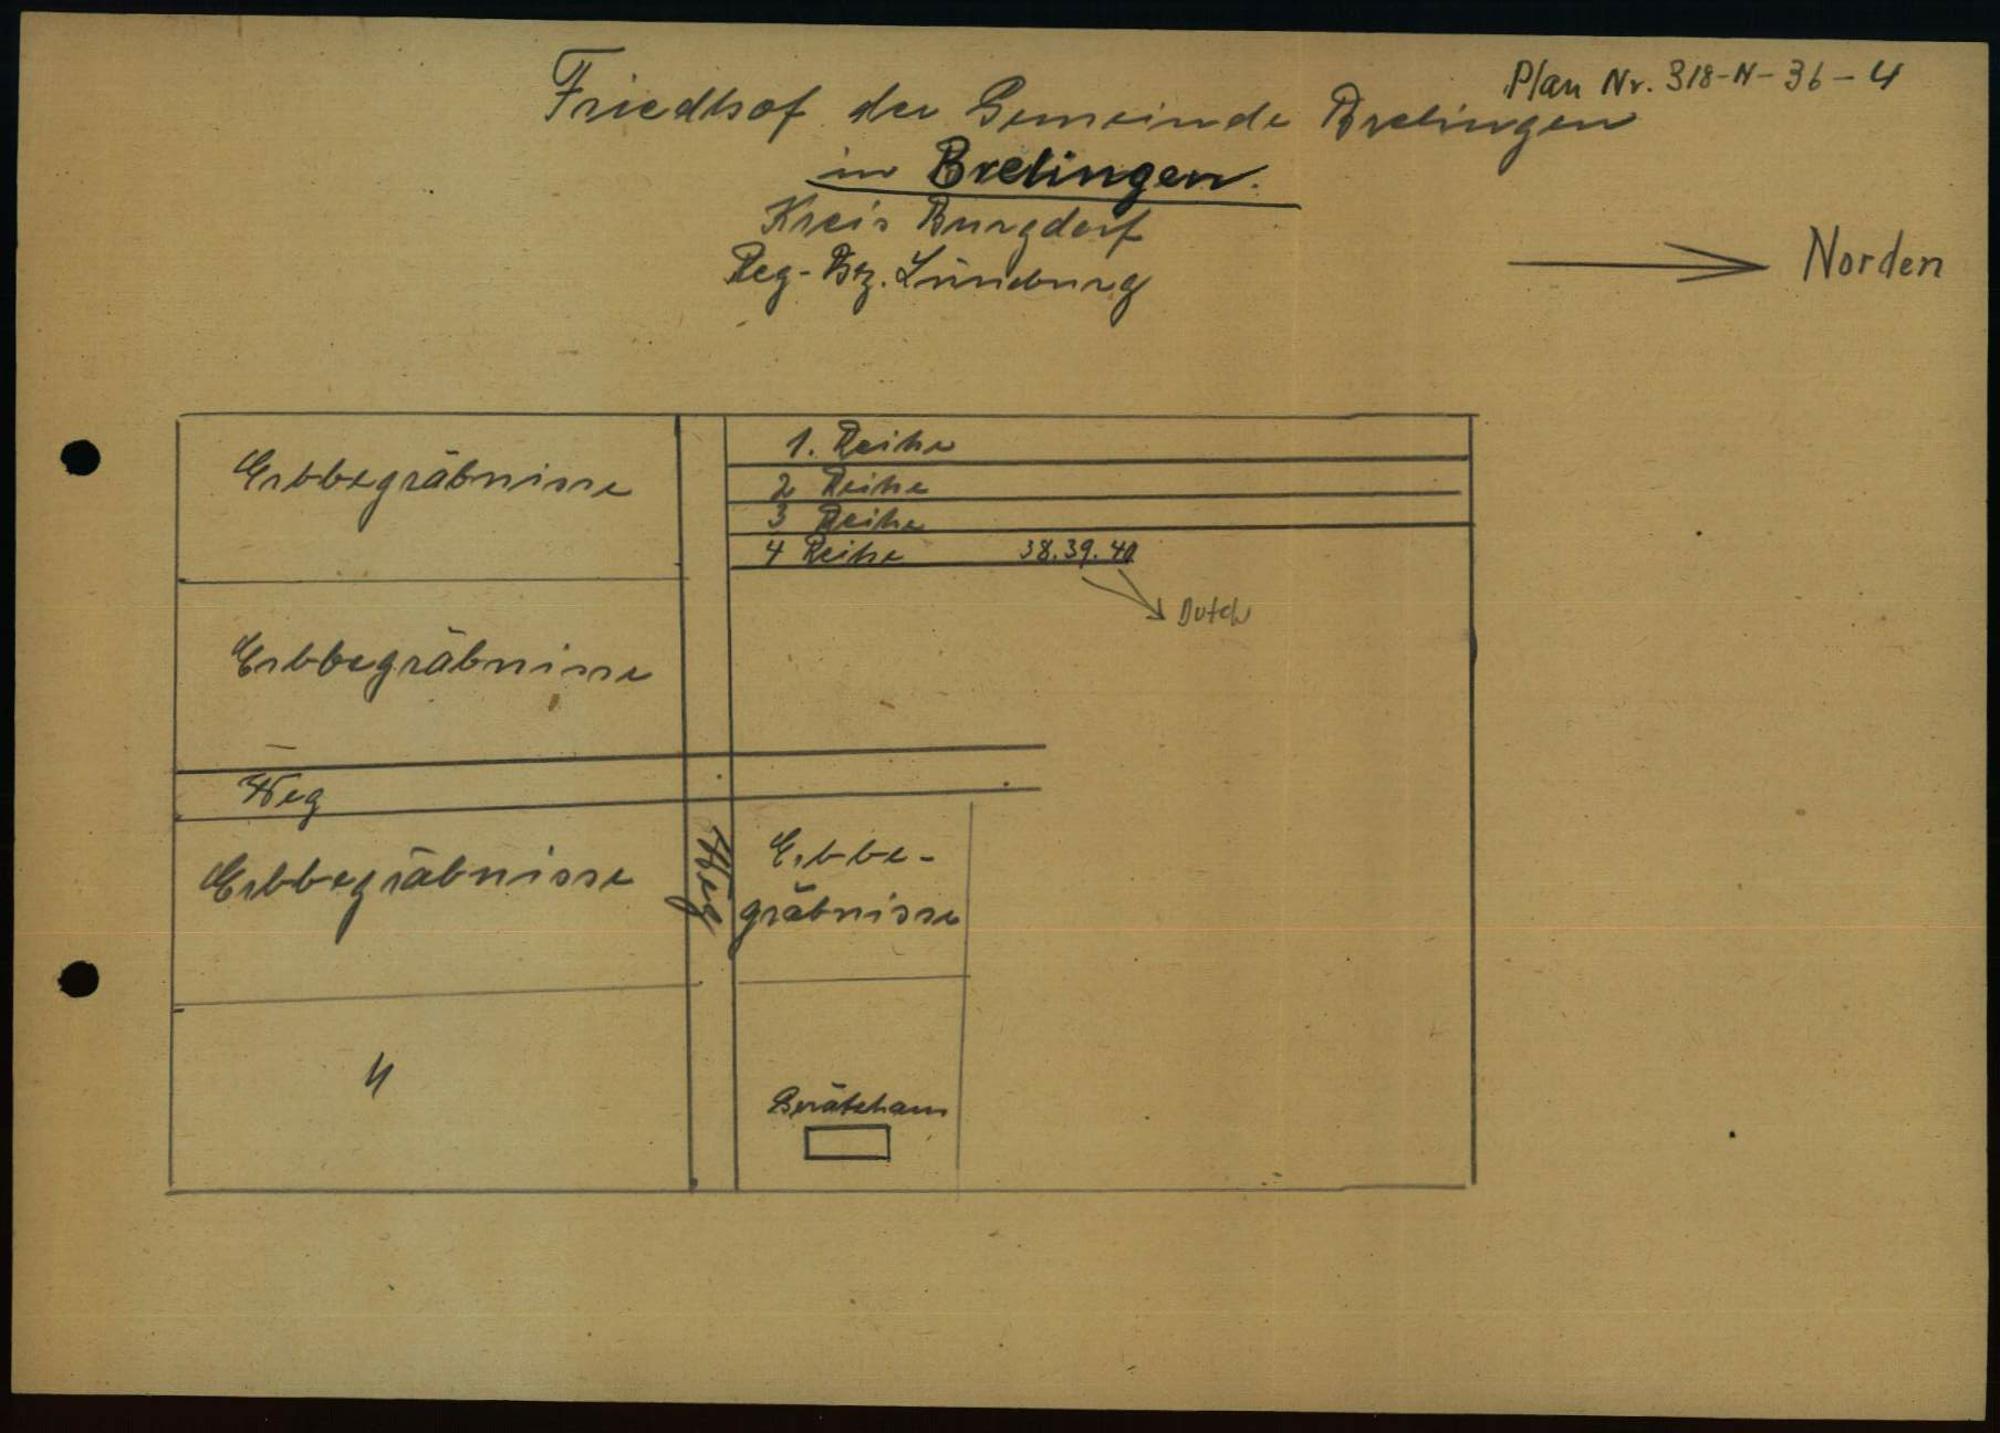 Plan Nr. 318-N-36-4
Friedhof der Gemeinde Brelingen
in Brelingen.
Kreis Burgdorf
Reg-Bz. Lüneburg
Norden
Erbbegräbnisse
1. Reihe
2 Reihe
3 Reihe
4 Reihe 38.39.40
Dutch
Erbbegräbnisse
Weg
Erbbegräbnisse
Weg
Erbbe-
gräbnisse
4
Gerätehaus